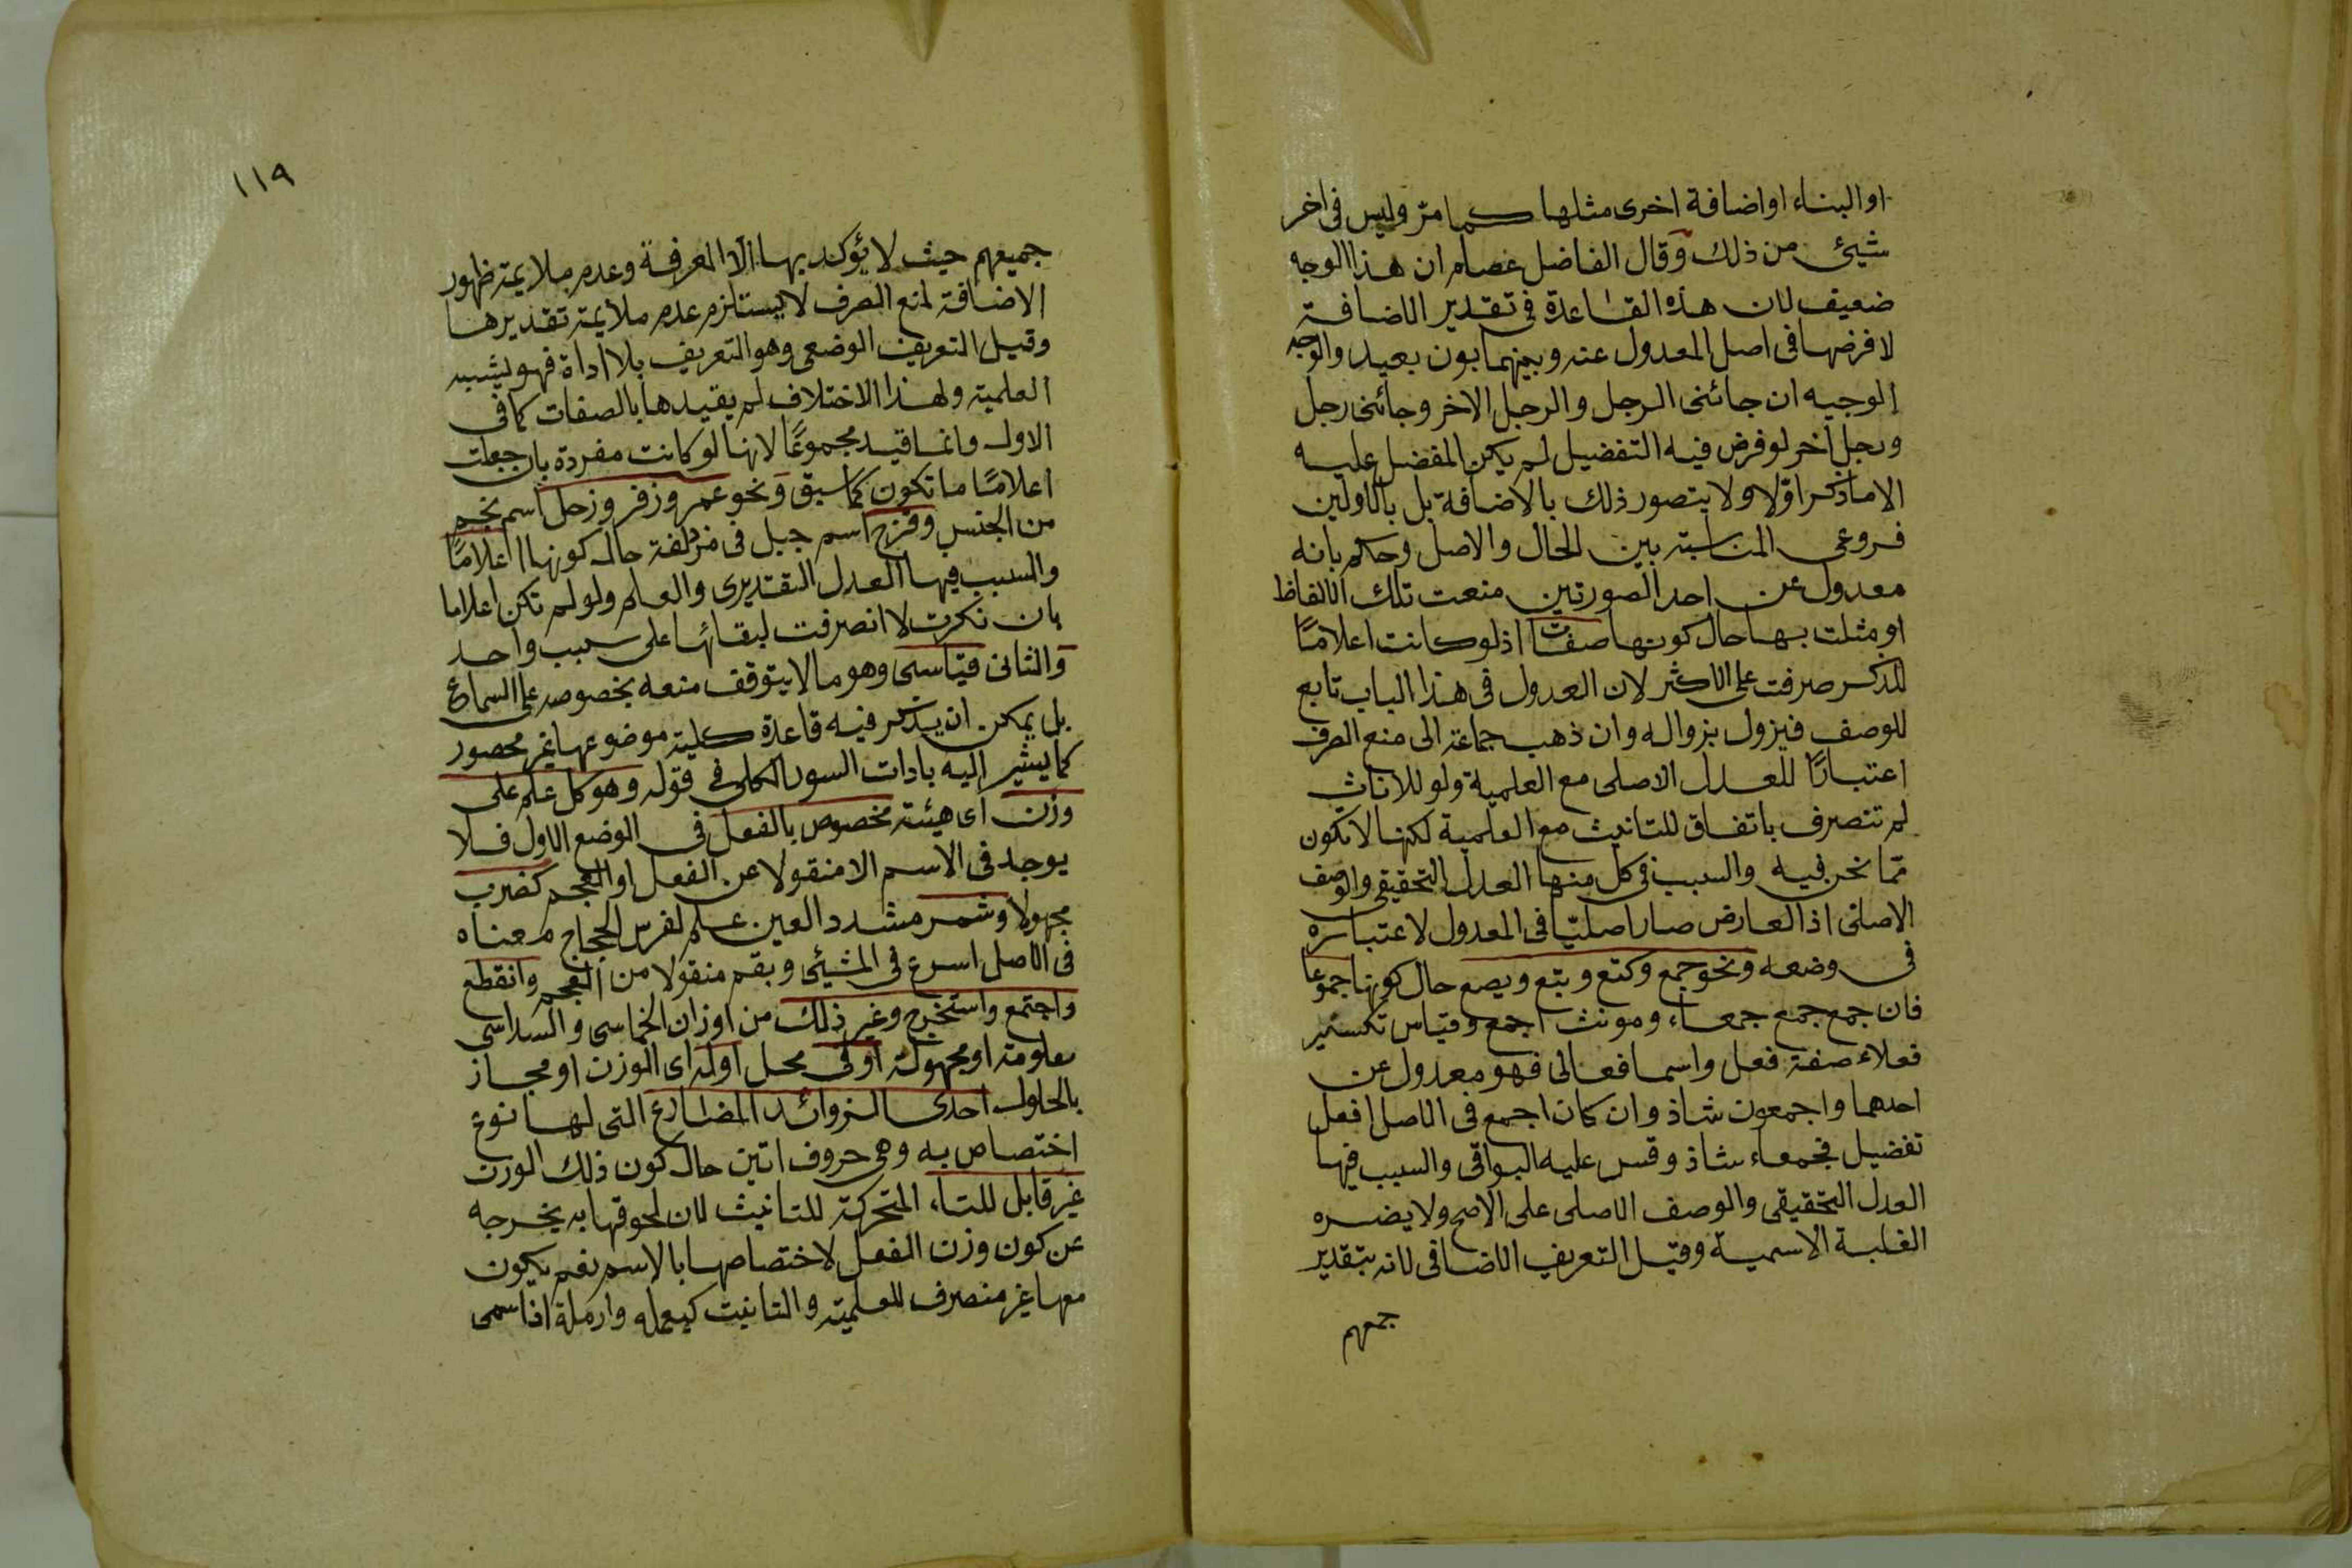 او البناء او اضافة اخرى مثلها كما مرّ وليس فى اخر
شيئ من ذلك وقال الفاضل عصام ان هذا الوجه
ضعيف لان هذه القاعدة فى تقدير الاضافة
لا فرضها فى اصل المعدول عنه وبينهما بون بعيد والوجه
الوجيه ان جائنى الرجل والرجل الاخر وجائنى رجل
ورجل آخر لو فرض فيه التفضيل لم يكن المفضل عليه
الا ما ذكر اوّلا ولا يتصور ذلك بالاضافة بل بالاولين
فروعى المناسبة بين الحال والاصل وحكم بانه
معدول عن احد الصورتين منعت تلك الالفاظ
او مثلت بها حال كونها صفات اذ لو كانت اعلامًا
للمذكر صرفت على الاكثر لان العدول فى هذا الباب تابع
للوصف فيزول بزواله وان ذهب جماعة الى منع الصرف
اعتبارًا للعدل الاصلى مع العلمية ولو للاناث
لم تنصرف باتفاق للتانيث مع العلمية لكنها لا تكون
ممّا نحن فيه والسبب فى كل منها العدل التحقيقى والوصف
الاصلى اذ العارض صار اصليّا فى المعدول لاعتباره
فى وضعه ونحو جمع وكتع وبتع وبصع حال كونها جموعا
فان جمع جمع جمعاء ومونث اجمع وقياس تكسير
فعلاء صفة فعل واسما فعالى فهو معدول عن
احدهما واجمعون شاذ وان كان اجمع فى الاصل افعل
تفضيل فجمعاء شاذ وقس عليه البواقى والسبب فيها
العدل التحقيقى والوصف الاصلى على الاصح ولا يضره
الغلبة الاسمية وقيل التعريف الاضافى لانه بتقدير
جمعهم
١١٩
جميعهم حيث لا يؤكد بها الّا المعرفة وعدم ملايمة ظهور
الاضافة لمنع الصرف لا يستلزم عدم ملايمة تقديرها
وقيل التعريف الوضعى وهو التعريف بلا اداة فهو يشبه
العلمية ولهذا الاختلاف لم يقيدها بالصفات كما فى
الاول وانما قيد مجموعًا لانها لو كانت مفردة بان جعلت
اعلامًا ما تكون كما سبق ونحو عمر وزفر وزحل اسم نجم
من الجنس وقزح اسم جبل فى مزدلفة حال كونها اعلامًا
والسبب فيها العدل التقديرى والعلم ولو لم تكن اعلاما
بان نكرت لا انصرفت لبقائها على سبب واحد
والثانى قياسى وهو ما لا يتوقف منعه بخصوصه على السماع
بل يمكن ان يذكر فيه قاعدة كلية موضوعها غير محصور
كما يشير اليه بادات السور الكلى فى قوله وهو كل علم على
وزن اى هيئة مخصوص بالفعل فى الوضع الاول فلا
يوجد فى الاسم الا منقولا عن الفعل او العجم كضرب
مجهولا وشمر مشدد العين علم لفرس الحجاج معناه
فى الاصل اسرع فى المشيئ وبقم منقولا من العجم وانقطع
واجتمع واستخرج وغير ذلك من اوزان الخماسى والسداسى
معلومة او مجهولة او فى محل اوله اى الوزن او مجاز
بالحلول احدى الزوائد المضارع التى لها نوع
اختصاص به وهى حروف اتين حال كون ذلك الوزن
غير قابل للتاء المتحركة للتانيث لان لحوقها به يخرجه
عن كون وزن الفعل لاختصاصها بالاسم نعم يكون
معها غير منصرف للعلمية والتانيت كيعمله وارملة اذا سمى